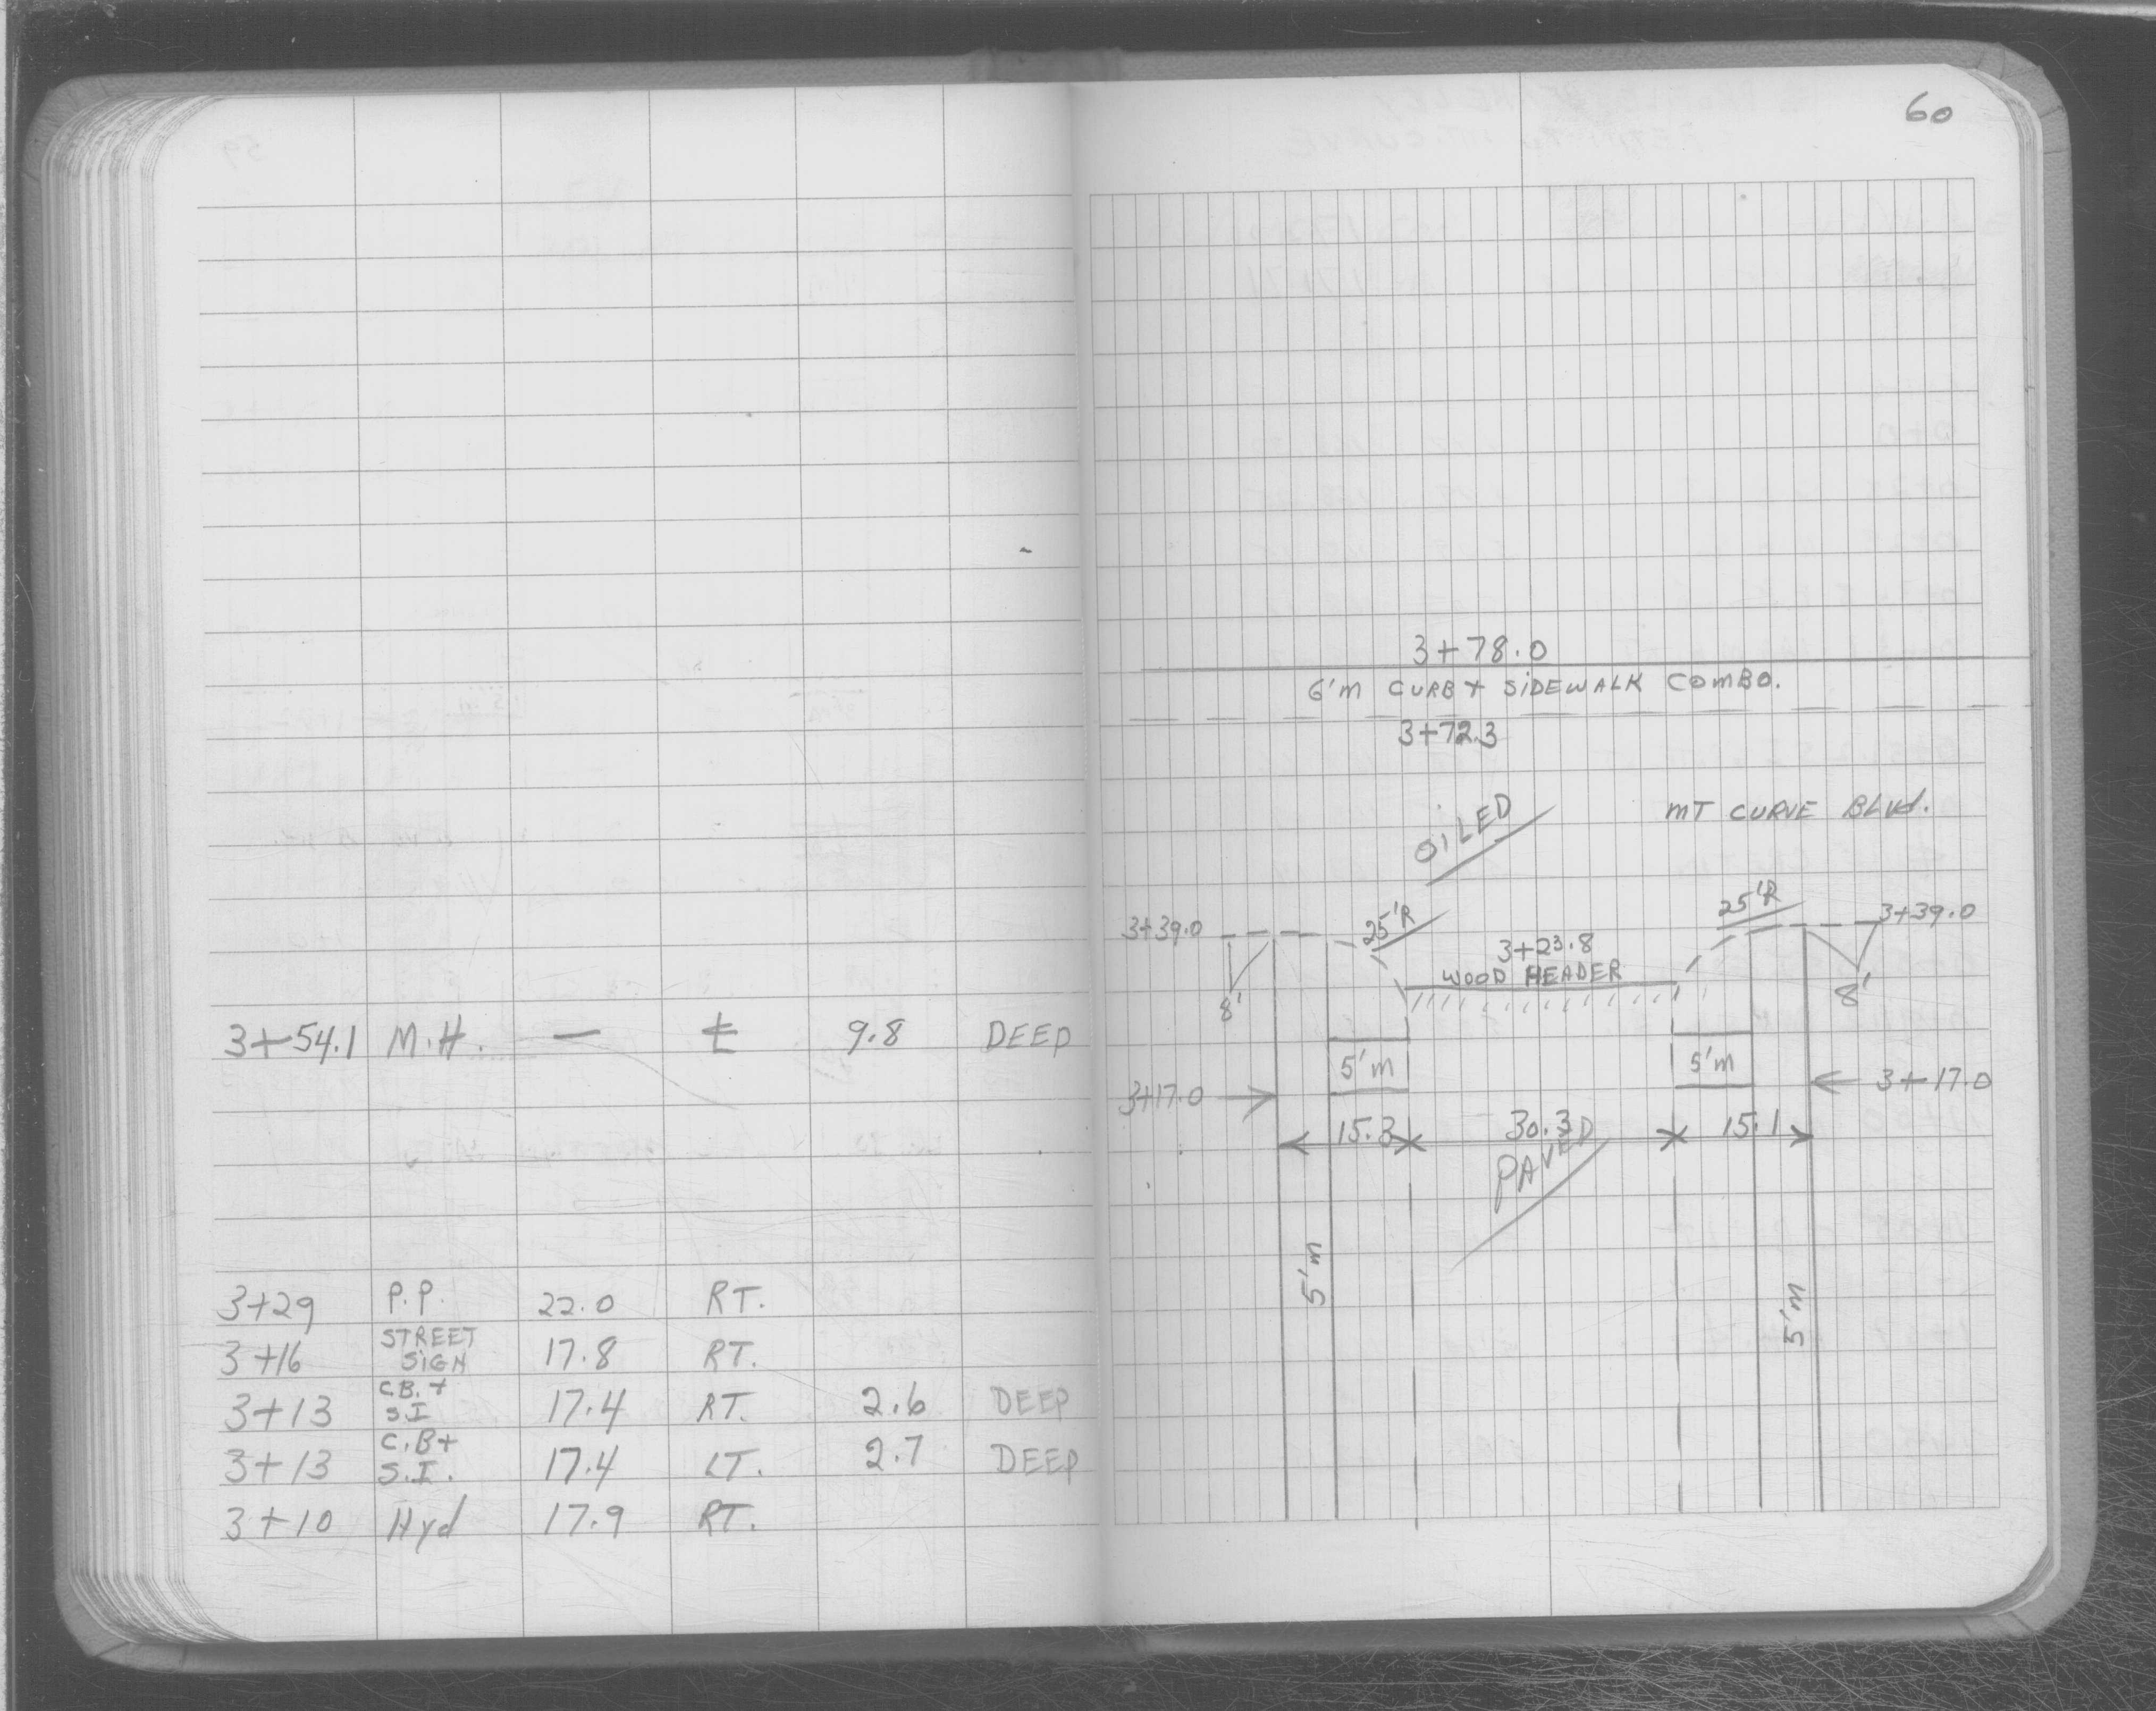 60
3+78.0
6'm CURB + SIDEWALK COMBO.
3+72.3
OILED
MT CURVE BLVd.
3+39.0
25'R
25'R
3+39.0
3+23.8
WOOD HEADER
8'
8'
3+54.1 M.H. — ⅊ 9.8 DEEP
5'm
5'm
3+17.0
3+17.0
15.3
30.3
15.1
PAVED
5'm
5'm
3+29 P.P. 22.0 RT.
3+16 STREET SIGN 17.8 RT.
3+13 C.B. + S.I 17.4 RT. 2.6 DEEP
3+13 C.B+ S.I. 17.4 LT. 2.7 DEEP
3+10 Hyd 17.9 RT.